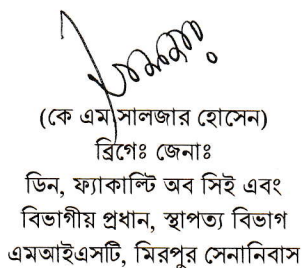 (কে এম সালজার হোসেন)
ব্রিগেঃ জেনাঃ
ডিন, ফ্যাকাল্টি অব সিই এবং
বিভাগীয় প্রধান, স্থাপত্য বিভাগ
এমআইএসটি, মিরপুর সেনানিবাস